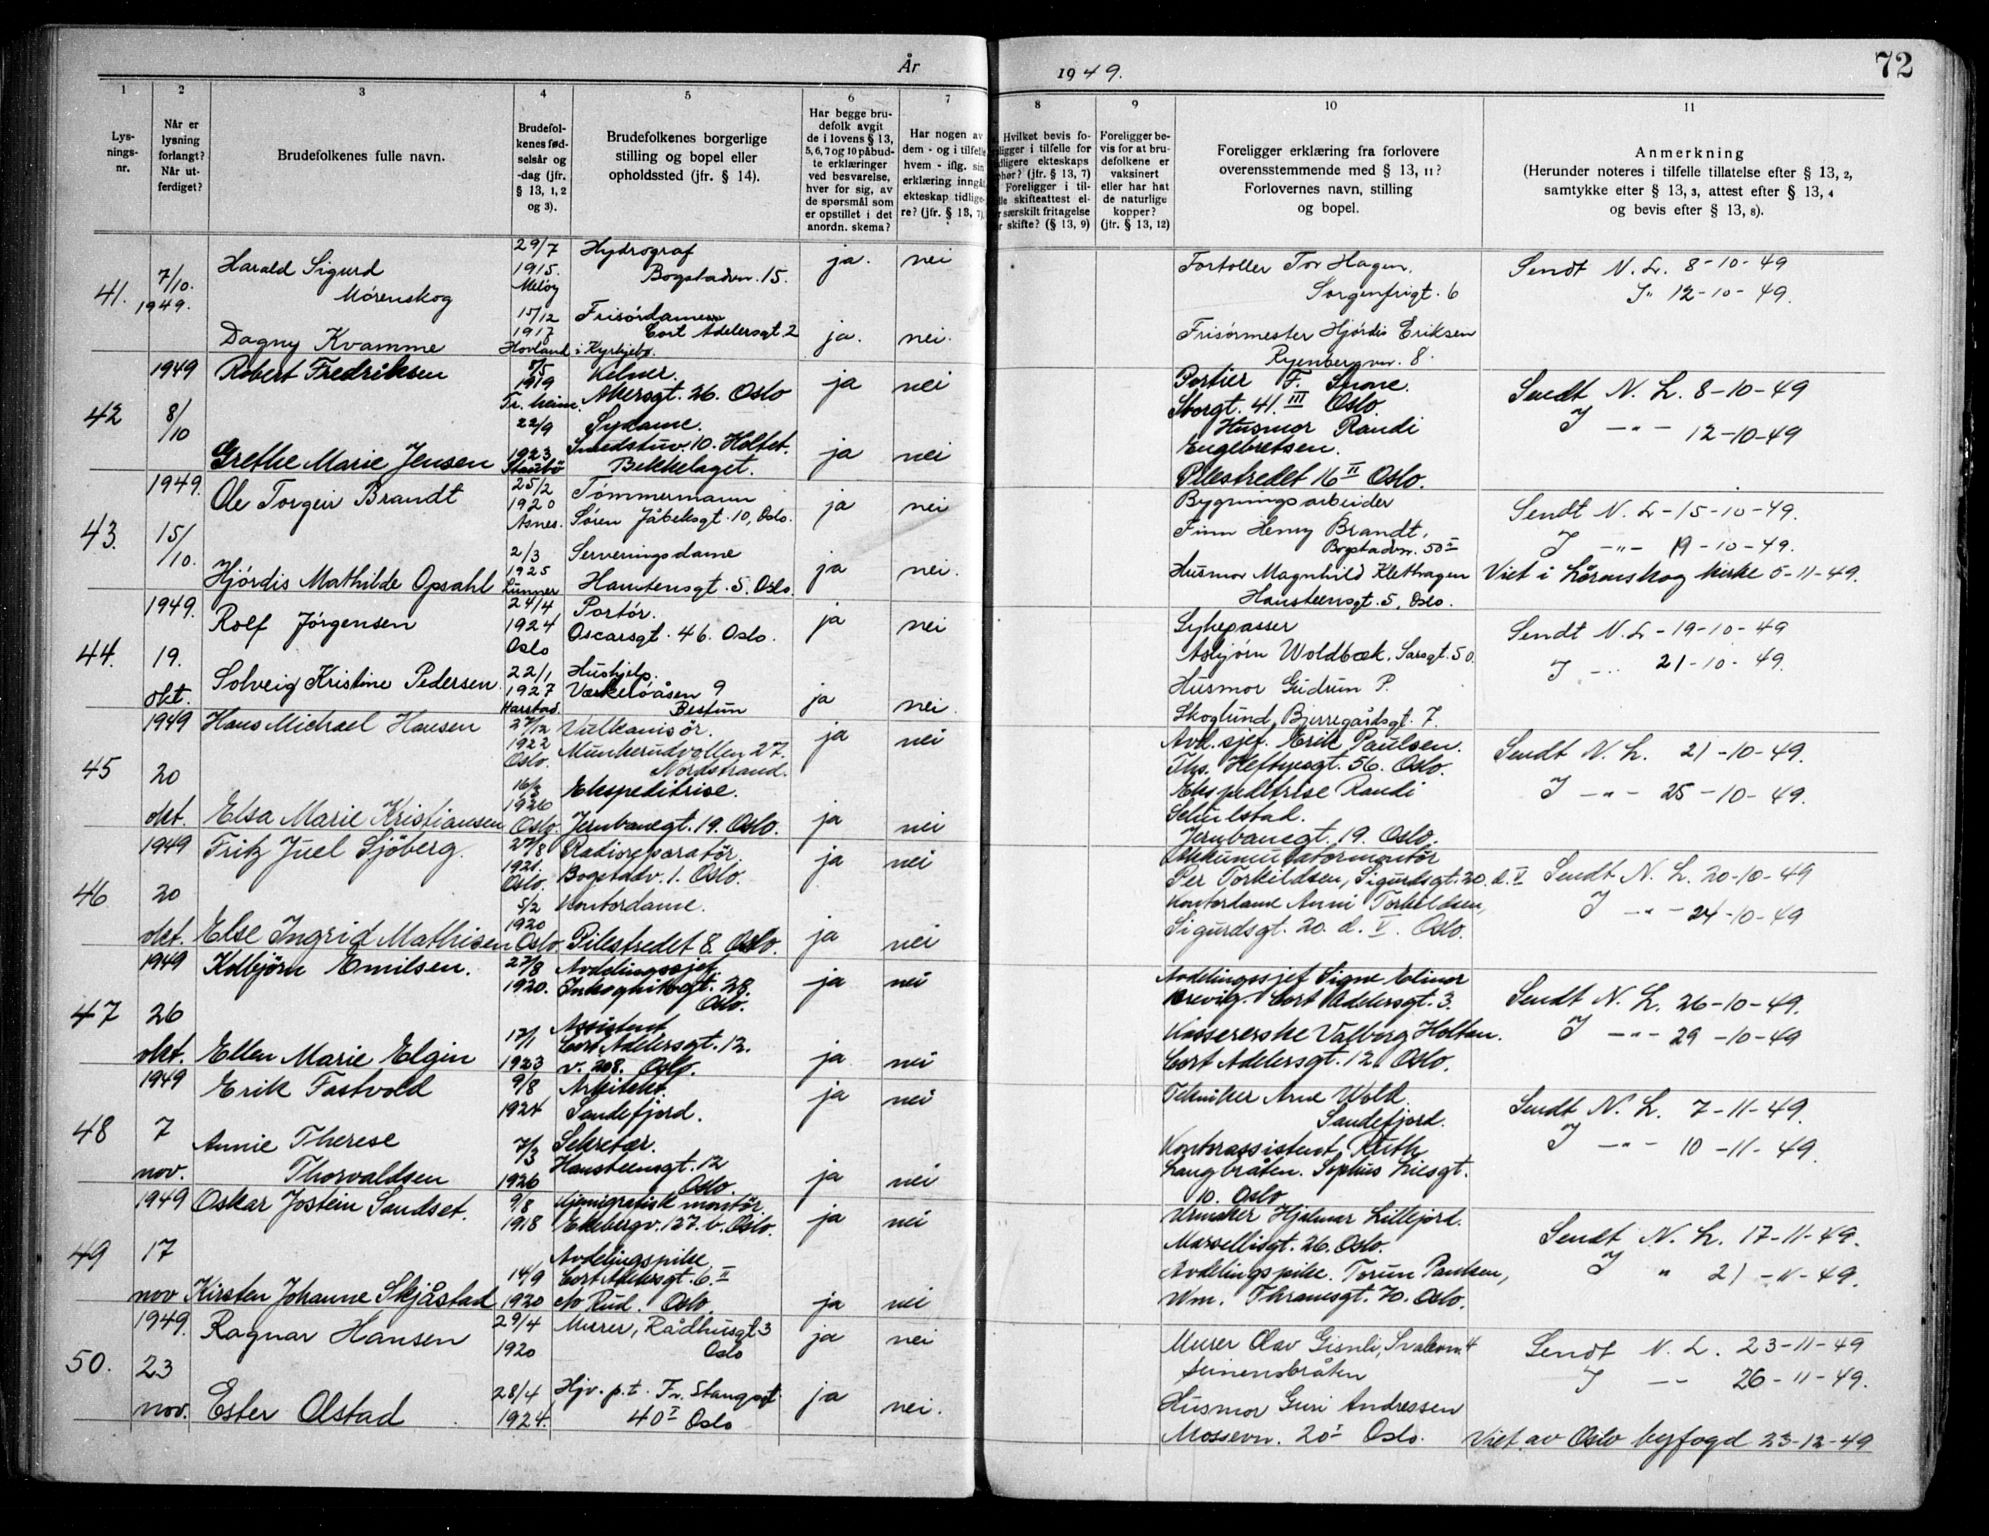 År 1949.
72
1 2 3 4 5 6 7 8 9 10 11
Lys-
nings-
nr.
Når er
lysning
forlangt?
Når ut-
ferdiget?
Brudefolkenes fulle navn.
Brudefol-
kenes fød-
selsår og
-dag (jfr.
§ 13, 1, 2
og 3).
Brudefolkenes borgerlige
stilling og bopel eller
opholdssted (jfr. § 14).
Har begge bru-
defolk avgit
de i lovens § 13,
5, 6, 7 og 10 påbud-
te erklæringer
ved besvarelse,
hver for sig, av
de spørsmål som
er opstillet i det
anordn. skema?
Har nogen av
dem - og i tilfelle
hvem - iflg. sin
erklæring inngåt
ekteskap tidlige-
re? (jfr. § 13, 7).
Hvilket bevis fo-
ligger i tilfelle for
idligere ekteskaps
phør? (jfr. § 13, 7)
Foreligger i til-
lle skifteattest el-
r særskilt fritagelse
r skifte? (§ 13, 9)
Foreligger be-
vis for at bru-
defolkene er
vaksinert
eller har hat
de naturlige
kopper?
(jfr. § 13, 12)
Foreligger erklæring fra forlovere
overensstemmende med § 13, 11?
Forlovernes navn, stilling
og bopel.
Anmerkning
(Herunder noteres i tilfelle tillatelse efter § 13, 2,
samtykke efter § 13, 3, attest efter § 13, 4
og bevis efter § 13, 8).
41. 7/10. 1949.
Harald Sigurd
Mørenskog
29/7
1915.
Meløy
Hydrograf
Bogstadvn. 15.
ja. nei
Fortoller Tor Hagen.
Sorgenfrigt. 6
Sendt N. L. 8-10-49
J" 12-10-49.
Dagny Kvamme
15/12
1917
Hovland i Kyrkjebø.
Frisørdame
Cort Adelersgt 2
ja. nei.
Frisørmester Hjørdis Eriksen
Ryenbergvn. 8.
42 1949 8/10
Robert Fredriksen
1919
Tr.heim.
Kelner.
Akersgt. 26. Oslo
ja nei
Portier F.
Storgt. 41. III Oslo.
Sendt N. L. 8-10-49
J -"- 12-10-49
Grethe Marie Jensen
22/9
1923
Sydame.
Smedstuv. 10. Holtet.
Bekkelaget.
ja nei
Husmor Randi
Engebretsen.
Pilestredet 16 II Oslo.
43. 1949. 15/10.
Ole Torgeir Brandt
25/2
1920
Åsnes.
Tømmermann
Søren Jåbeksgt. 10, Oslo.
ja nei
Bygningsarbeider
Finn Henry Brandt,
Bogstadvn. 50 I
Sendt N. L - 15-10-49.
J -"- 19-10-49.
Hjørdis Mathilde Opsahl
2/3
1925
Lunner
Serveringsdame
Hanstensgt. 5. Oslo.
ja nei.
Husmor Magnhild Klethagen
Hansteensgt. 5, Oslo.
Viet i Lørenskog kirke 5-11-49.
44. 1949. 19. okt.
Rolf Jørgensen
24/4
1924
Oslo
Portør.
Oscarsgt. 46. Oslo.
ja nei
Sykepasser
Asbjørn Woldbæk. Sarsgt. 50.
Sendt N. L - 19-10-49
J -"- 21-10-49.
Solveig Kristine Pedersen
22/1
1927
Harstad.
Hushjelp.
Værkelöåsen 9
Bestun
ja nei.
Husmor Gudrun P.
Skoglund, Bjerregårdsgt. 7.
45 1949 20 okt.
Hans Michael Hansen
27/12
1922
Oslo.
Vulkanisør.
Munkerudvollen 27.
Nordstrand.
ja nei
Avd. sjef. Erik Paulsen.
Ths. Heftyesgt. 56. Oslo.
Sendt N. L. 21-10-49.
J -"- 25-10-49.
Elsa Marie Kristiansen
1926
Oslo.
Ekspeditrise.
Jernbanegt. 19. Oslo.
ja nei
Ekspeditrise Randi
Schulstad.
Jernbanegt. 19. Oslo.
46 1949 20 okt.
Fritz Juel Sjöberg.
27/8
1921.
Oslo.
Radioreparatør.
Bogstadv. 1. Oslo.
ja nei
Akkumulatormontør
Per Torkildsen, Sigurdsgt. 20. d. V
Sendt N. L. 20-10-49
J -"- 24-10-49
Else Ingrid Mathisen
5/2
1920
Oslo.
Kontordame.
Pilestredet 8. Oslo.
ja nei
Kontordame Anni Torkildsen,
Sigurdsgt. 20. d. V. Oslo.
47 1949 26 okt.
Kolbjörn Emilsen.
27/8
1920.
Avdelingssjef
Inkognitogt. 28.
Oslo.
ja nei
Avdelingssjef Signe Elinor
Brevig. Cort Adelersgt. 3.
Sendt N. L. 26-10-49.
J -"- 29-10-49
Ellen Marie Elgin
17/1
1923
Assistent
Cort Adelersgt. 12.
v. 208. Oslo.
ja nei
Kassererske Valborg Holtan.
Cort Adelersgt. 12. Oslo.
48 1949 7 nov.
Erik Fastvold
9/8
1924
Arkitekt.
Sandefjord.
ja nei
Tekniker Arne Wold.
Sandefjord.
Sendt N. L. 7-11-49.
J -"- 10-11-49.
Annie Therese
Thorvaldsen
7/3
1926
Sekretær.
Hansteensgt. 12
Oslo.
ja nei
Kontorassistent Ruth
Langbråten. Sophus Liesgt.
10. Oslo
49 1949 17 nov
Oskar Jostein Sandset.
9/8
1918
Kjemigrafisk montør.
Ekebergv. 127. b. Oslo.
ja nei
Urmaker Hjalmar Lillejord.
Marselliisgt. 26. Oslo.
Sendt N. L. 17-11-49.
J " 21-11-49.
Kirsten Johanne Skjåstad
14/9
1920
Avdelingspike,
Cort Adelersgt. 6. II
c/o Rud. Oslo.
ja nei
Avdelingspike. Torun Paulsen,
Wm. Thranesgt. 70. Oslo.
50. 1949. 23 nov.
Ragnar Hansen
29/4
1920
Murer, Rådhusgt 3
Oslo
ja nei
Murer Olav Gisnli, Svalevn. 4
Simensbråten
Sendt N. L. 23-11-49
J -- 26-11-49.
Ester Olstad
28/4
1924.
Hjv. p.t. Fr. Stangsgt
40 I Oslo
ja nei.
Husmor Guri Andressen
Mossevn. 20 I Oslo.
Viet. av Oslo byfogd 23-12-49